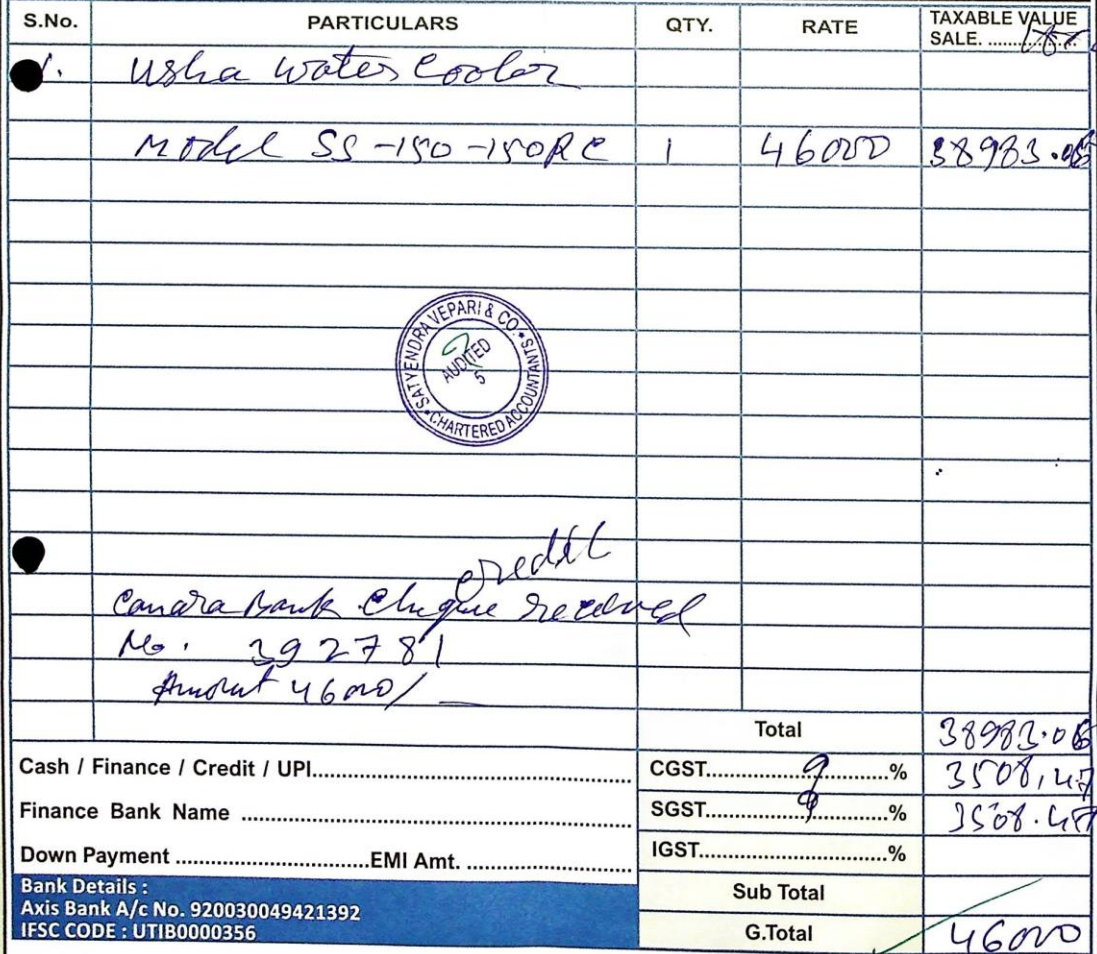 S.No. PARTICULARS QTY. RATE TAXABLE VALUE
SALE. ............
1. Usha Water Cooler
Model SS-150-150RC 1 46000 38983.05
SATYENDRA VEPARI & CO. * CHARTERED ACCOUNTANTS *
AUDITED
5
credit
Canara Bank Cheque received
No. 392781
Amount 46000/
Total 38983.05
Cash / Finance / Credit / UPI............ CGST......9......% 3508.47
Finance Bank Name ............ SGST......9......% 3508.47
Down Payment ............EMI Amt. ............ IGST............%
Bank Details : Sub Total
Axis Bank A/c No. 920030049421392
IFSC CODE : UTIB0000356 G.Total 46000